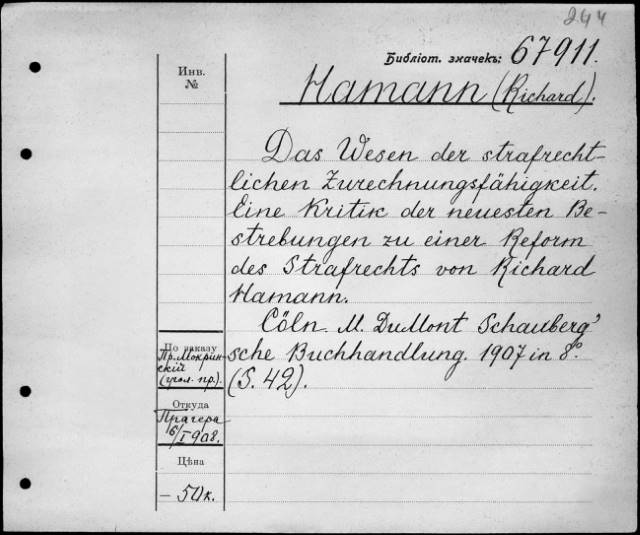 244
Библіот. значекъ: 67911.
Инв.
№
Hamann (Richard).
Das Wesen der strafrecht-
lichen Zurechnungsfähigkeit.
Eine Kritik der neuesten Be-
strebungen zu einer Reform
des Strafrechts von Richard
Hamann.
Cöln. M. DuMont Schauberg'
sche Buchhandlung. 1907 in 8º.
(S. 42).
По заказу
Пр. Мокрин-
скій
(угол. пр.).
Откуда
Прагера
6/I 908.
Цѣна
– 50 к.